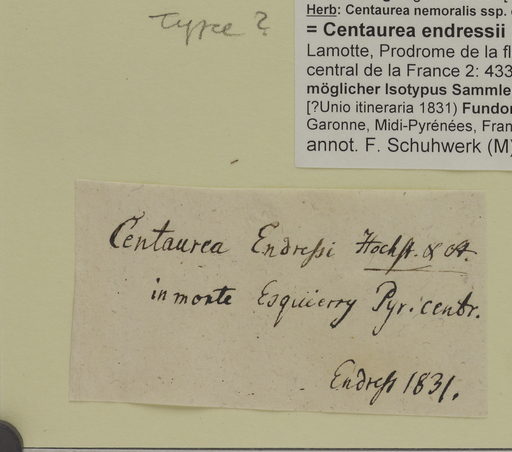 Type?
Herb: Centaurea nemoralis ssp.
= Centaurea endressii
Lamotte, Prodrome de la fl
central de la France 2: 433
möglicher Isotypus Sammle
[?Unio itineraria 1831) Fundor
Garonne, Midi-Pyrénées, Fran
annot. F. Schuhwerk (M)
Centaurea Endreſsi Hochst. & St.
in monte Esquierry Pyr. centr.
Endreſs 1831.